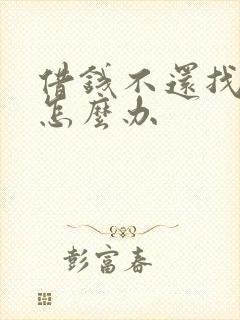 借錢不還找
怎麼办
彭富春